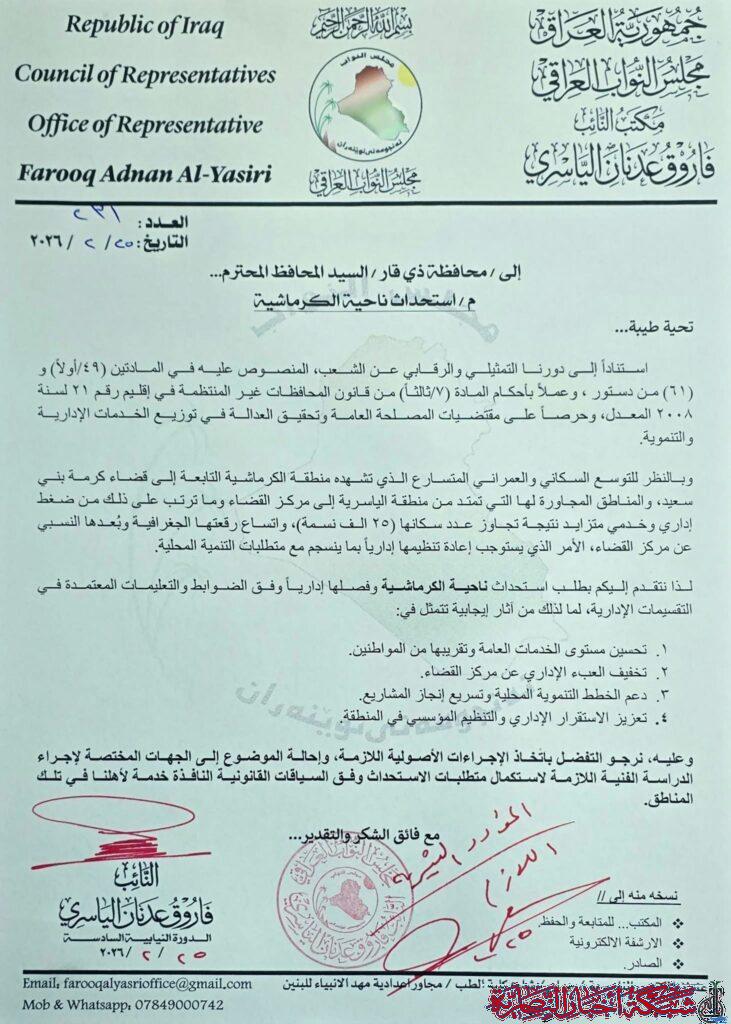 Republic of Iraq
Council of Representatives
Office of Representative
Farooq Adnan Al-Yasiri
بسم الله الرحمن الرحيم
مجلس النواب
ئەنجومەنی نوێنەران
مجلس النواب العراقي
جمهورية العراق
مجلس النواب العراقي
مكتب النائب
فاروق عدنان الياسري
العدد: ٢٣١
التاريخ: ٢٥ / ٢ / ٢٠٢٦
إلى / محافظة ذي قار / السيد المحافظ المحترم...
م / استحداث ناحية الكرماشية
تحية طيبة...
استناداً إلى دورنا التمثيلي والرقابي عن الشعب، المنصوص عليه في المادتين (٤٩/أولاً) و
(٦١) من دستور ، وعملاً بأحكام المادة (٧/ثالثاً) من قانون المحافظات غير المنتظمة في إقليم رقم ٢١ لسنة
٢٠٠٨ المعدل، وحرصاً على مقتضيات المصلحة العامة وتحقيق العدالة في توزيع الخدمات الإدارية
والتنموية.
وبالنظر للتوسع السكاني والعمراني المتسارع الذي تشهده منطقة الكرماشية التابعة إلى قضاء كرمة بني
سعيد، والمناطق المجاورة لها التي تمتد من منطقة الياسرية إلى مركز القضاء وما ترتب على ذلك من ضغط
إداري وخدمي متزايد نتيجة تجاوز عدد سكانها (٢٥ الف نسمة)، واتساع رقعتها الجغرافية وبُعدها النسبي
عن مركز القضاء، الأمر الذي يستوجب إعادة تنظيمها إدارياً بما ينسجم مع متطلبات التنمية المحلية.
لذا نتقدم إليكم بطلب استحداث ناحية الكرماشية وفصلها إدارياً وفق الضوابط والتعليمات المعتمدة في
التقسيمات الإدارية، لما لذلك من آثار إيجابية تتمثل في:
١. تحسين مستوى الخدمات العامة وتقريبها من المواطنين.
٢. تخفيف العبء الإداري عن مركز القضاء.
٣. دعم الخطط التنموية المحلية وتسريع إنجاز المشاريع.
٤. تعزيز الاستقرار الإداري والتنظيم المؤسسي في المنطقة.
وعليه، نرجو التفضل باتخاذ الإجراءات الأصولية اللازمة، وإحالة الموضوع إلى الجهات المختصة لإجراء
الدراسة الفنية اللازمة لاستكمال متطلبات الاستحداث وفق السياقات القانونية النافذة خدمة لأهلنا في تلك
المناطق.
مع فائق الشكر والتقدير...
اللازم
٢٥
النائب
فاروق عدنان الياسري
الدورة النيابية السادسة
٢٥ / ٢ / ٢٠٢٦
نسخه منه إلى //
❖ المكتب... للمتابعة والحفظ.
❖ الارشفة الالكترونية
❖ الصادر.
Email: farooqalyasrioffice@gmail.com
Mob & Whatsapp: 07849000742
الطب / مجاور اعدادية مهد الانبياء للبنين
شبكة اخبار الناصرية